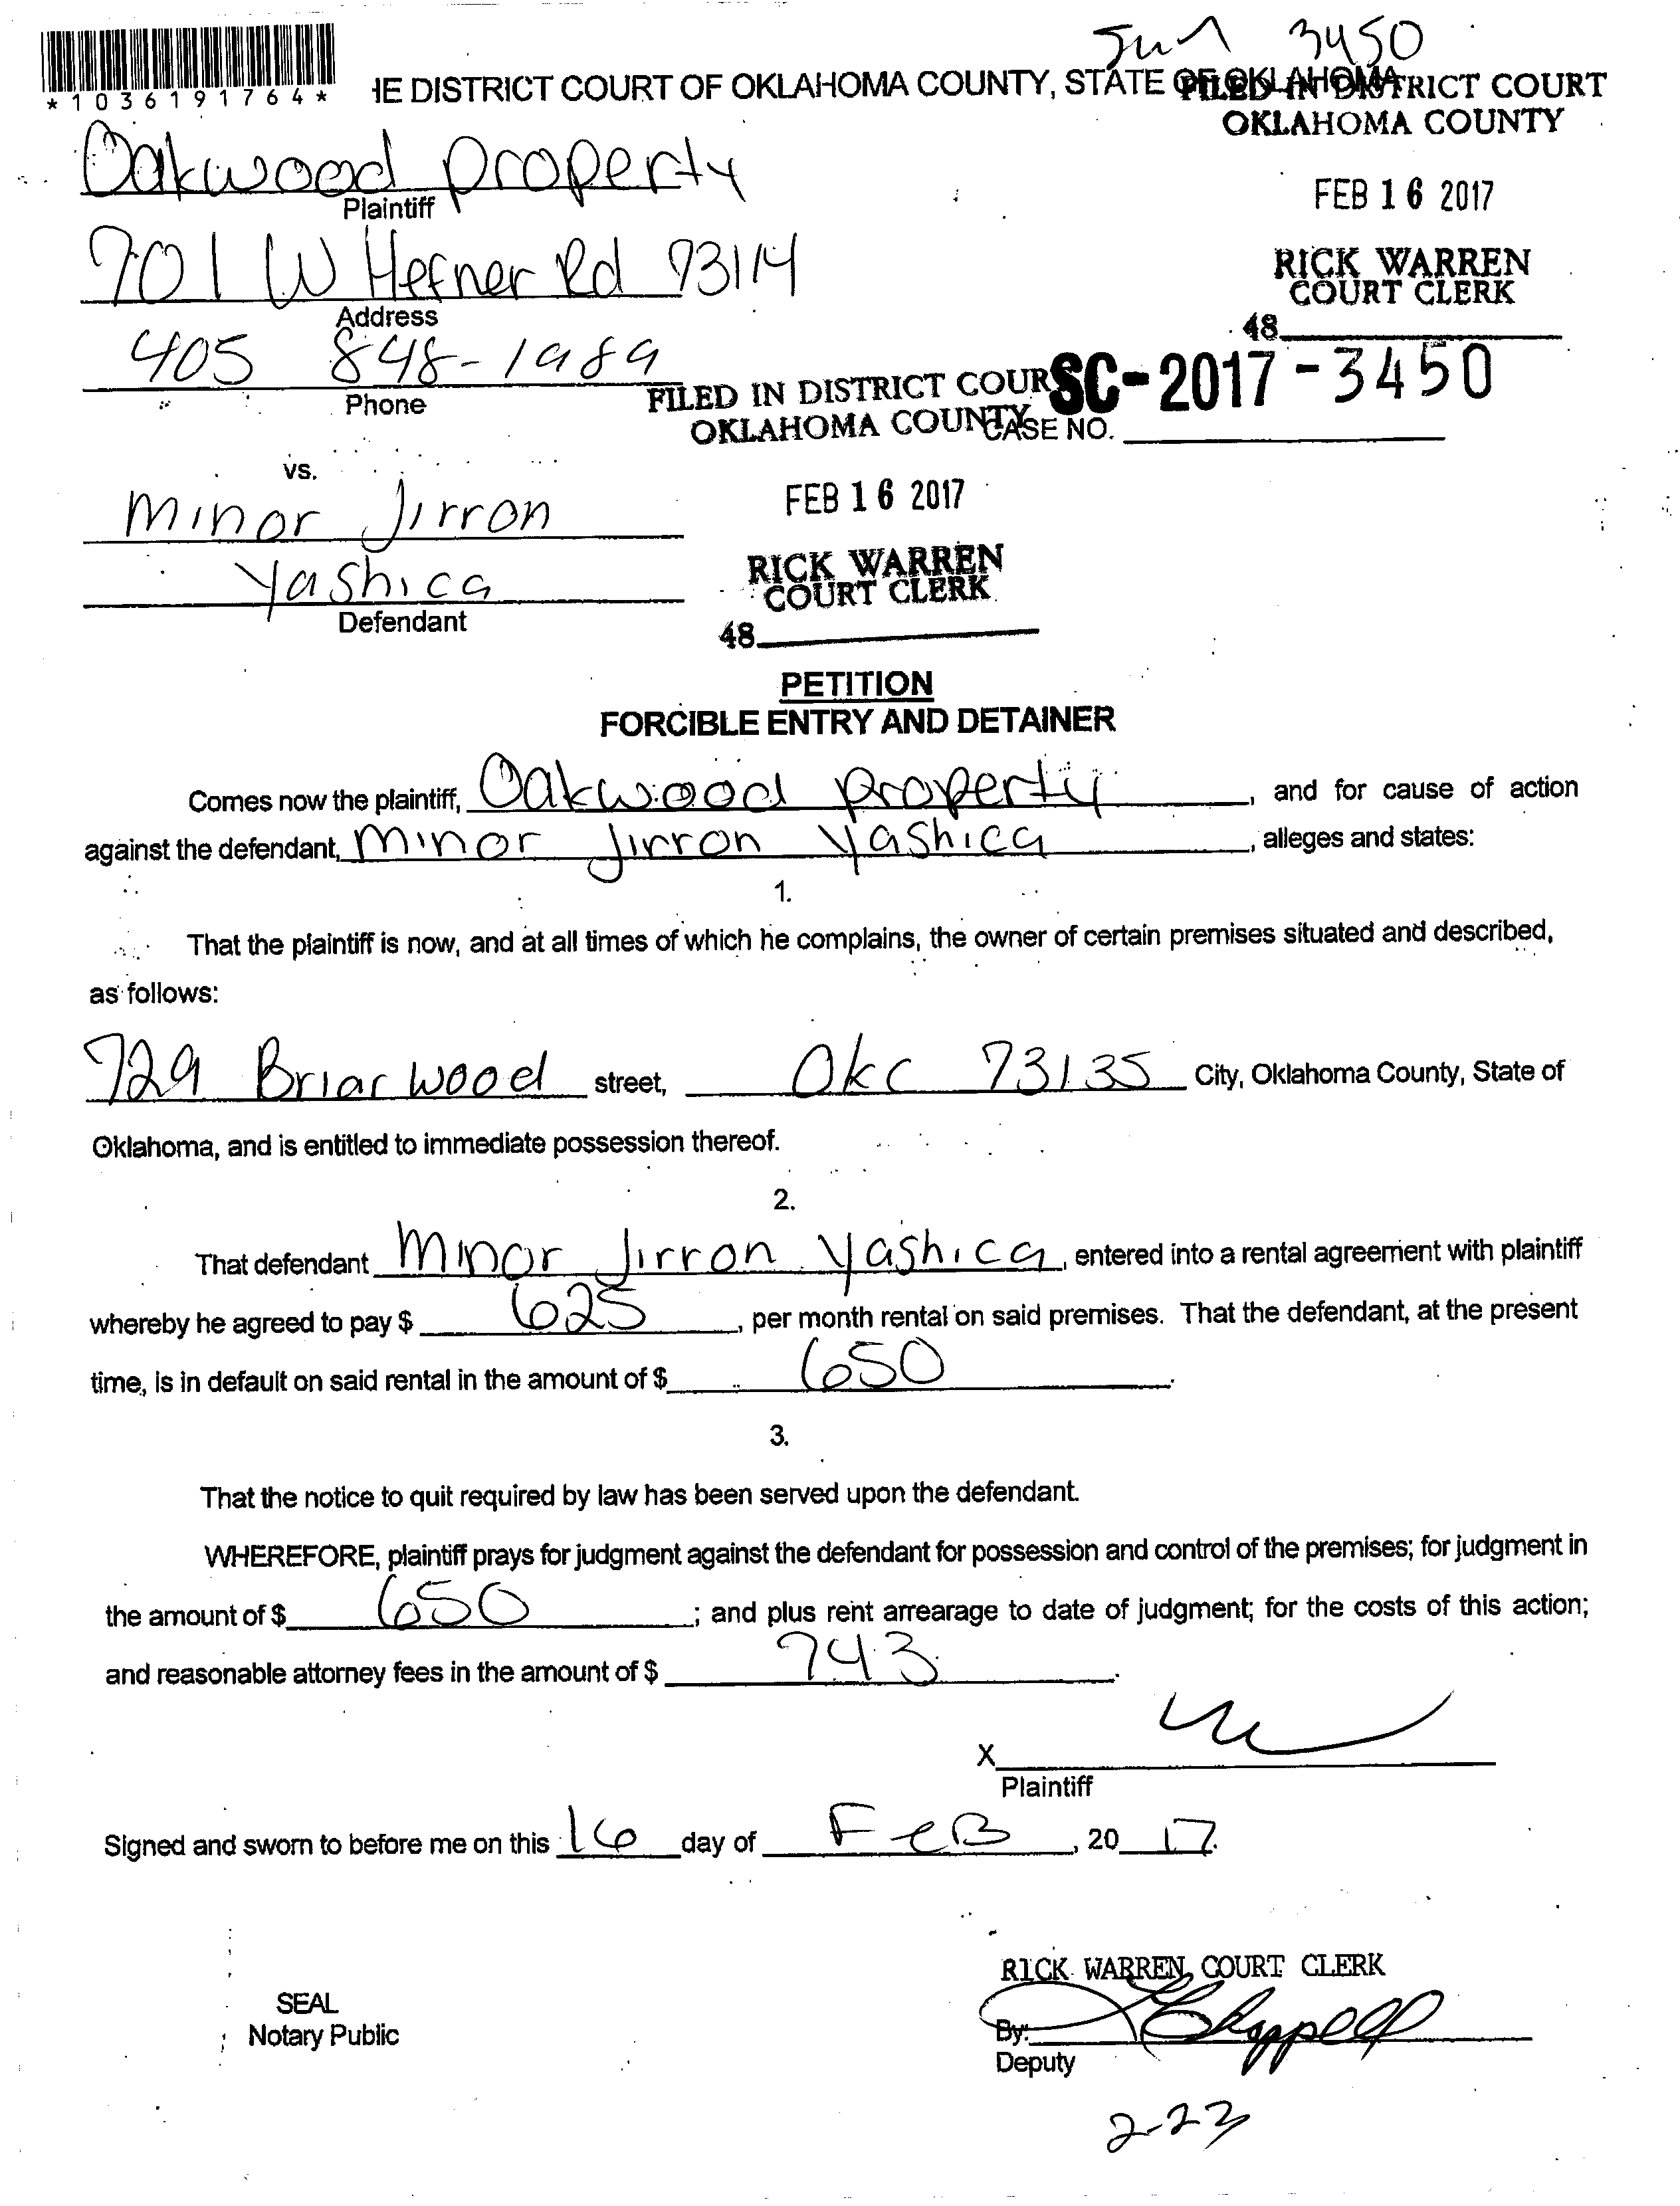 3450
*1036191764*
HE DISTRICT COURT OF OKLAHOMA COUNTY, STATE OF OKLAHOMA
FILED IN DISTRICT COURT
OKLAHOMA COUNTY
Oakwood property
Plaintiff
FEB 16 2017
701 W Hefner Rd 73114
Address
RICK WARREN
COURT CLERK
48
405 848-1989
Phone
FILED IN DISTRICT COURT
OKLAHOMA COUNTY
SC-2017-3450
CASE NO.
vs.
Minor Jirron
FEB 16 2017
Yashica
Defendant
RICK WARREN
COURT CLERK
48
PETITION
FORCIBLE ENTRY AND DETAINER
Comes now the plaintiff, Oakwood property, and for cause of action
against the defendant, Minor Jirron Yashica, alleges and states:
1.
That the plaintiff is now, and at all times of which he complains, the owner of certain premises situated and described,
as follows:
729 Briarwood street, Okc 73135 City, Oklahoma County, State of
Oklahoma, and is entitled to immediate possession thereof.
2.
That defendant Minor Jirron Yashica, entered into a rental agreement with plaintiff
whereby he agreed to pay $ 625, per month rental on said premises. That the defendant, at the present
time, is in default on said rental in the amount of $ 650.
3.
That the notice to quit required by law has been served upon the defendant.
WHEREFORE, plaintiff prays for judgment against the defendant for possession and control of the premises; for judgment in
the amount of $ 650; and plus rent arrearage to date of judgment; for the costs of this action;
and reasonable attorney fees in the amount of $ 743.
X
Plaintiff
Signed and sworn to before me on this 16 day of FeB, 20 17.
RICK WARREN, COURT CLERK
SEAL
Notary Public
By:
Deputy
2-23